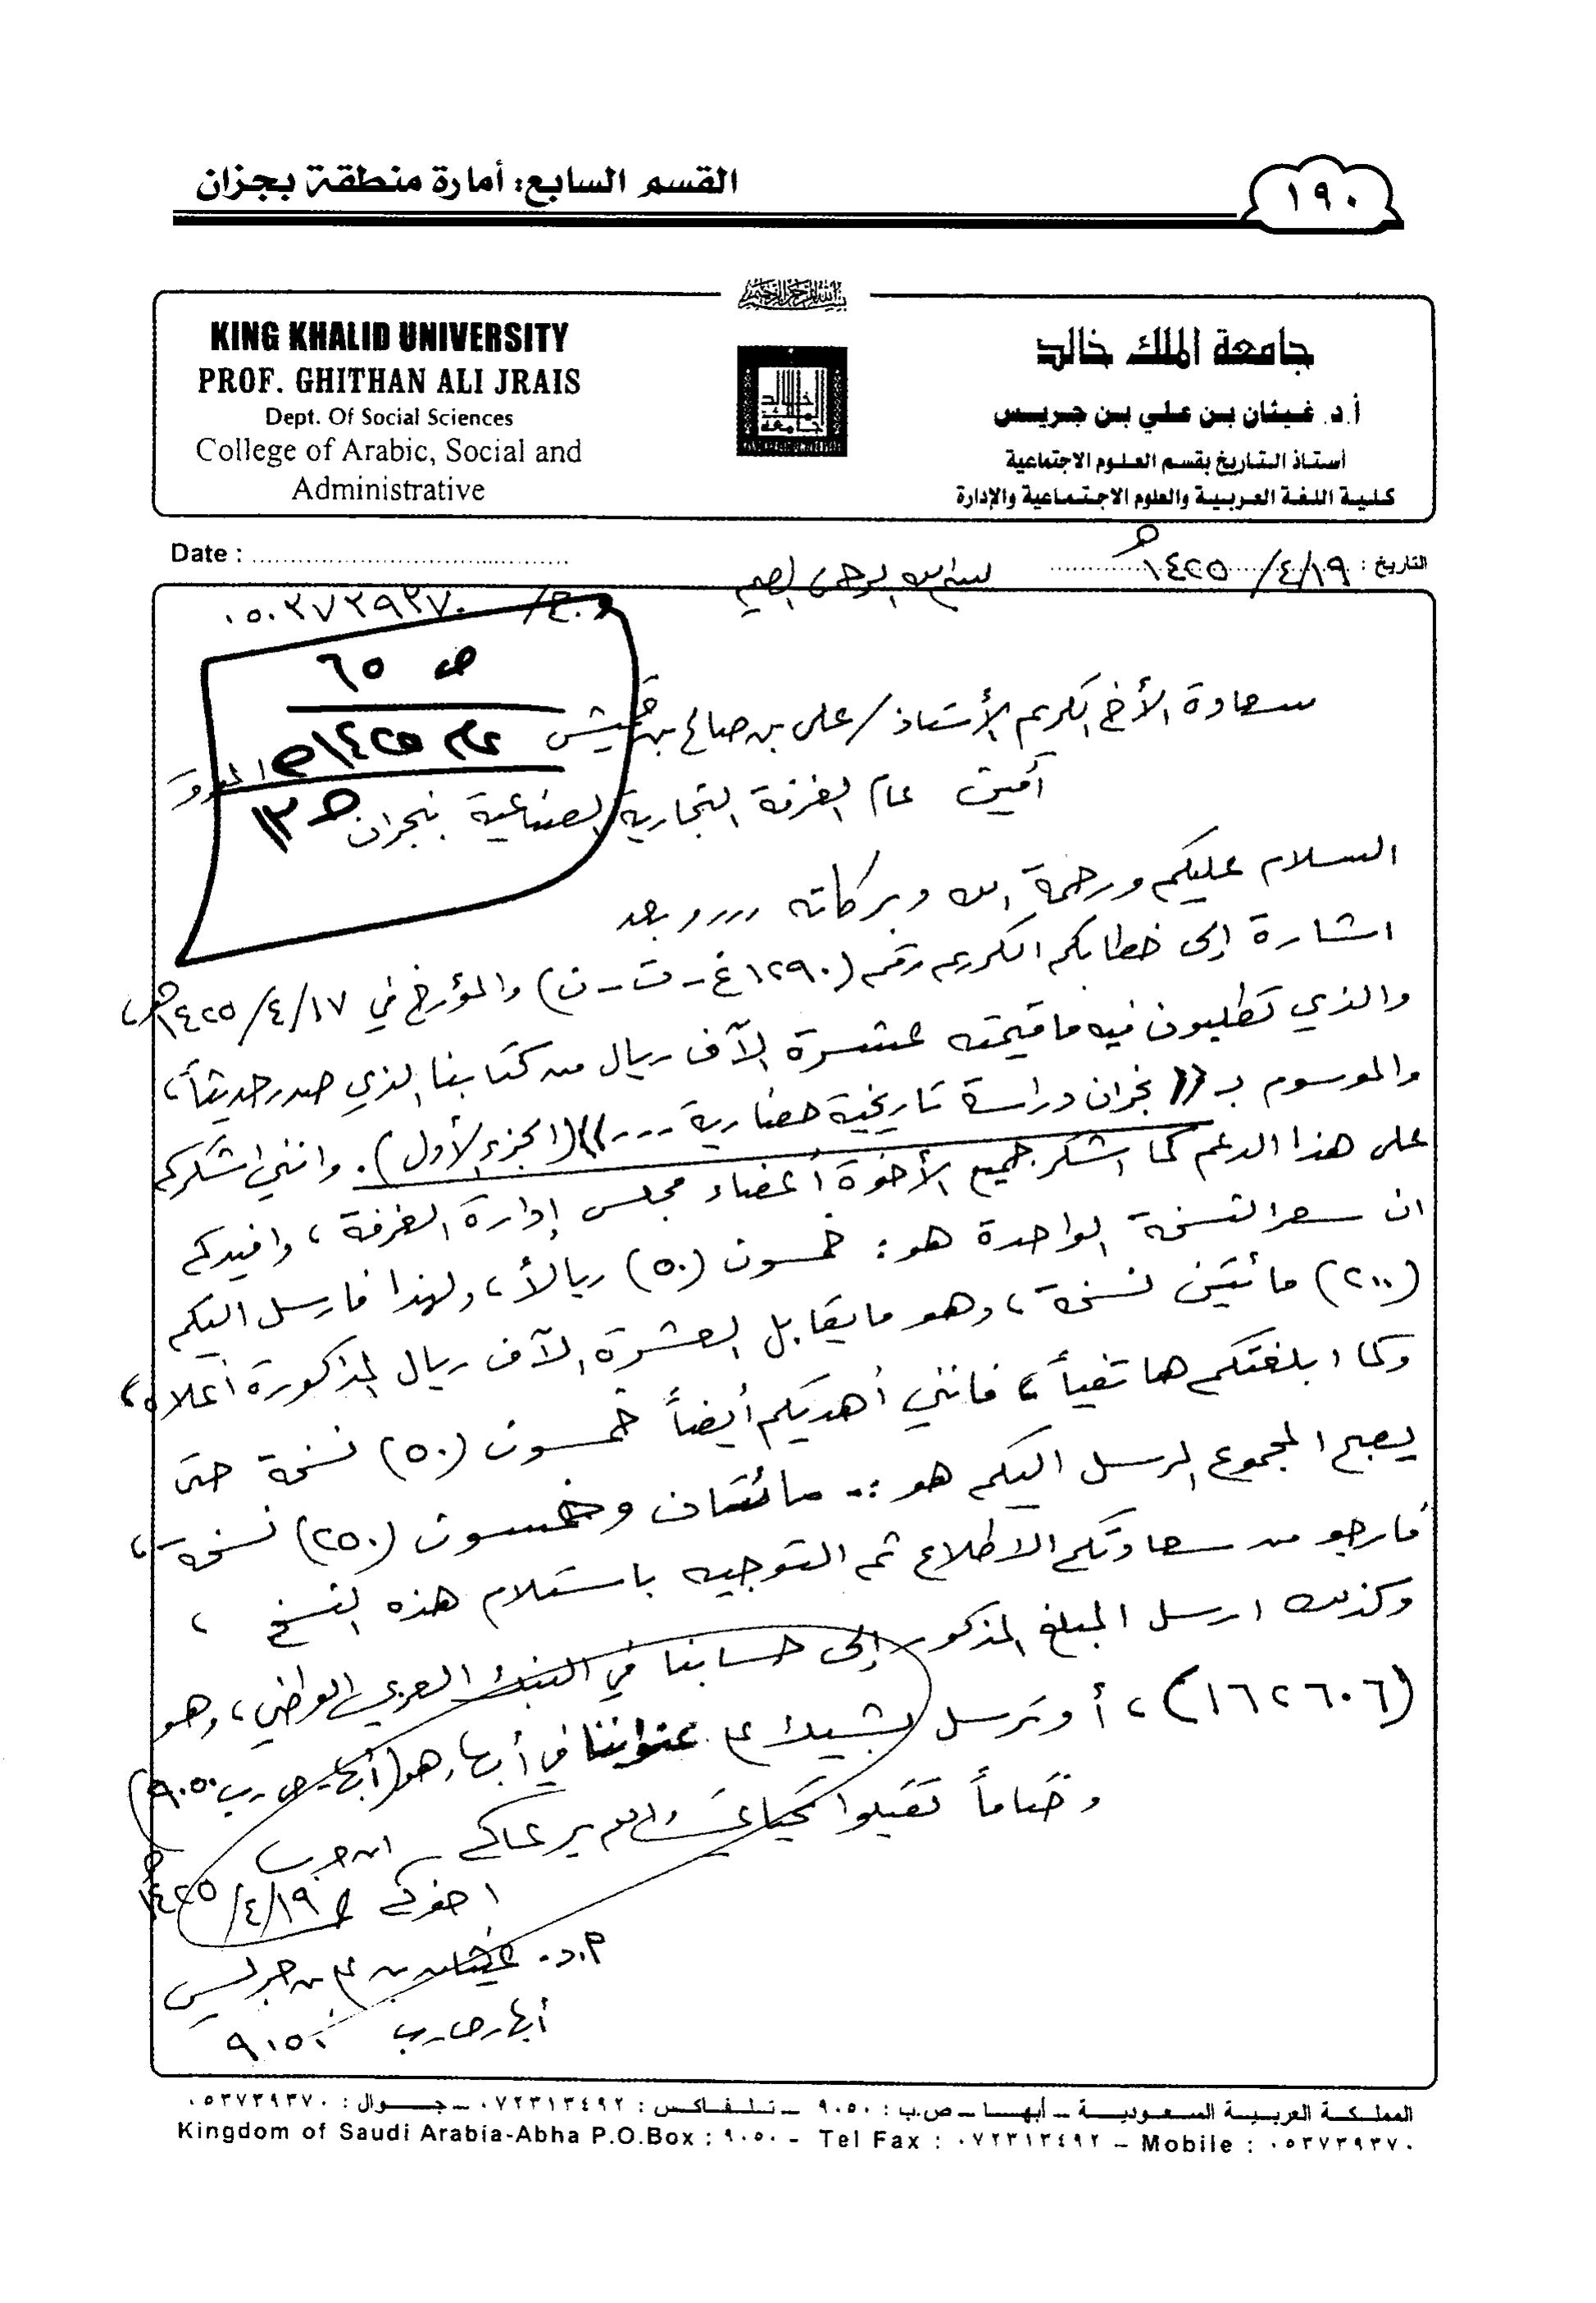 القسم السابع: أمارة منطقة بجزان
١٩٠
KING KHALID UNIVERSITY
PROF. GHITHAN ALI JRAIS
Dept. Of Social Sciences
College of Arabic, Social and
Administrative
بسم الله الرحمن الرحيم
جامعة الملك خالد
أ.د. غيثان بن علي بن جريس
أستاذ التاريخ بقسم العلوم الاجتماعية
كلية اللغة العربية والعلوم الاجتماعية والإدارة
Date :
التاريخ : ١٩/٤/١٤٢٥هـ
بسم الله الرحمن الرحيم
ج/ ٠٥٠٣٧٣٩٣٧٠
ص ٦٥
عام ١٤٢٥هـ
ح ١٣
سعادة الأخ الكريم الأستاذ/ علي بن صالح بن قميش
أمين عام الغرفة التجارية الصناعية بنجران الموقر
السلام عليكم ورحمة الله وبركاته ,,,, وبعد
اشارة إلى خطابكم الكريم رقم (١٢٩٠غ-ت-ن) والمؤرخ في ١٧/٤/١٤٢٥هـ،
والذي تطلبون فيه ما قيمته عشرة الآف ريال من كتابنا الذي صدر حديثاً،
والموسوم بـ ((نجران دراسة تاريخية حضارية ---)) (الجزء الأول). وانني اشكركم
على هذا الدعم كما اشكر جميع الأخوة أعضاء مجلس إدارة الغرفة، وافيدكم
ان سعر النسخة الواحدة هو: خمسون (٥٠) ريالاً، ولهذا فارسل اليكم
(٢٠٠) مائتين نسخة، وهو ما يقابل العشرة الآف ريال المذكورة أعلاه،
وكما ابلغتكم هاتفياً، فانني أهديكم أيضاً خمسون (٥٠) نسخة حتى
يصبح المجموع المرسل اليكم هو :- مائتان وخمسون (٢٥٠) نسخة،
فارجو من سعادتكم الاطلاع ثم التوجيه باستلام هذه النسخ ،
وكذلك ارسل المبلغ المذكور إلى حسابنا في البنك العربي الوطني، وهو
(١٦٢٦٠٦)، أو ترسل بشيك على عنواننا في أبها، وهو (أبها- ص.ب ٩٠٥٠)
وختاماً تقبلوا تحياتي والله يرعاكم
اخوكم
١٩/٤/١٤٢٥هـ
أ.د. غيثان بن علي بن جريس
أبها، ص.ب ٩٠٥٠
المملكة العربية السعودية – أبها – ص.ب : ٩٠٥٠ – تلفاكس : ٠٧٢٣١٣٤٩٢ – جوال : ٠٥٣٧٣٩٣٧٠
Kingdom of Saudi Arabia-Abha P.O.Box : ٩٠٥٠ - Tel Fax : ٠٧٢٣١٣٤٩٢ – Mobile : ٠٥٣٧٣٩٣٧٠